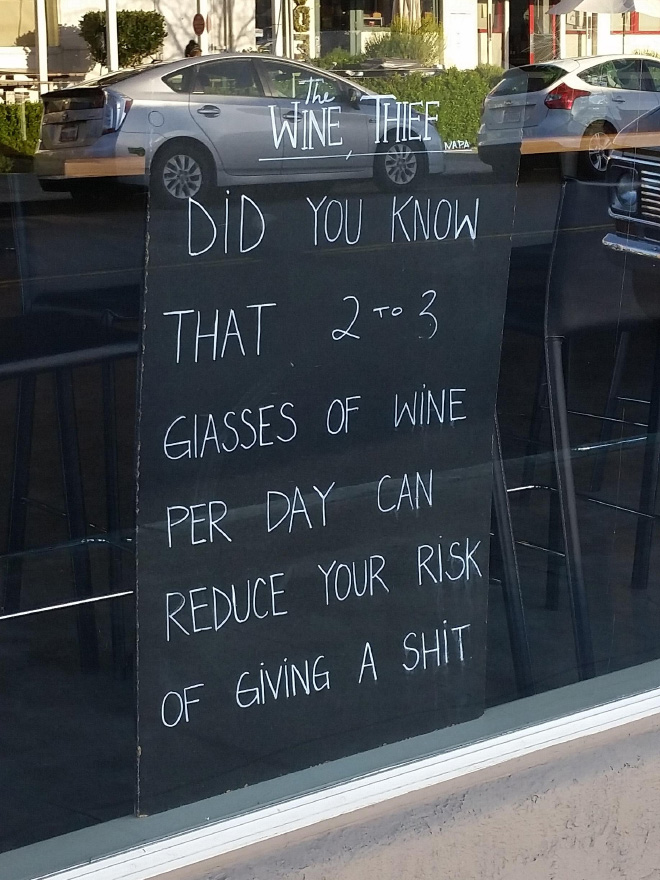 The
WINE THIEF
NAPA
DID YOU KNOW
THAT 2 TO 3
GLASSES OF WINE
PER DAY CAN
REDUCE YOUR RISK
OF GIVING A SHIT